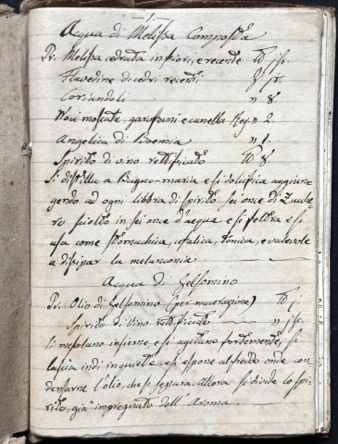 Acqua di Melissa Composta
Pr. Melissa cedrata in fiori, e recente ℔ jſs.
Flavedine di cedri recenti ℥ jſs.
Coriandoli " 8
Noci moscate, garofani e canella Reg. " 2
Angelica di Boemia " 1.
Spirito di vino rettificato ℔ 8
Si distilla a Bagno-maria e si dolcifica aggiun-
gendo ad ogni libbra di spirito sei once di Zucche-
ro sciolto in sei once d'acqua e si feltra e si
usa come stomachica, cefalica, tonica, e valevole
a dissipar la melanconia
Acqua di Gelsomino
Pr. Olio di Gelsomino (per macerazione) ℔ j.
Spirito di Vino rettificato " jſs.
Si mescolano insieme e si agitano fortemente, si
lascia indi in quiete e si espone al freddo onde con-
densarne l'olio, che si separa. Allora si divide lo spi-
rito, già impregnato dell'Aroma.